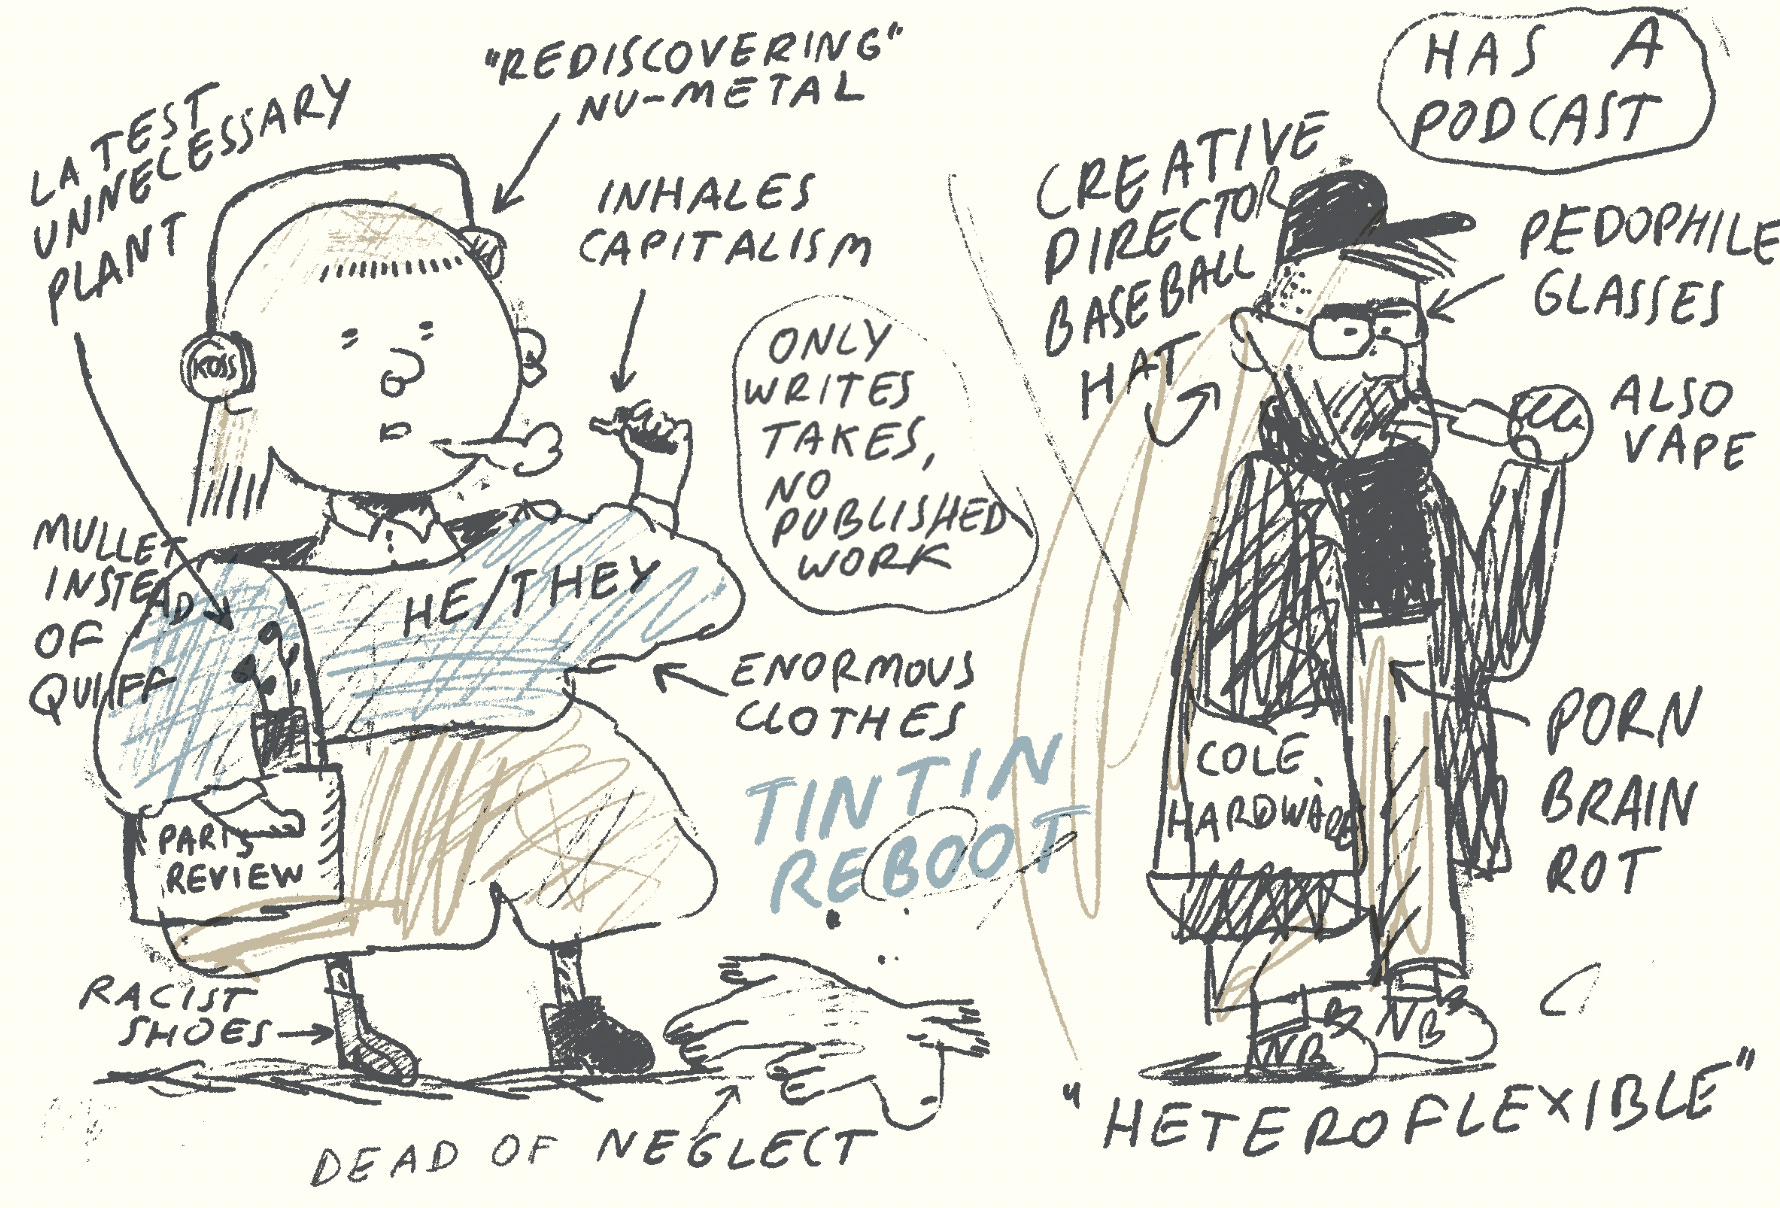 LATEST
UNNECESSARY
PLANT
"REDISCOVERING"
NU-METAL
INHALES
CAPITALISM
KOSS
ONLY
WRITES
TAKES,
NO
PUBLISHED
WORK
MULLET
INSTEAD
OF
QUIFF
HE/THEY
ENORMOUS
CLOTHES
PARIS
REVIEW
RACIST
SHOES
TINTIN
REBOOT
DEAD OF NEGLECT
HAS A
PODCAST
CREATIVE
DIRECTOR
BASEBALL
HAT
PEDOPHILE
GLASSES
ALSO
VAPE
COLE
HARDWARE
PORN
BRAIN
ROT
NB
NB
"HETEROFLEXIBLE"